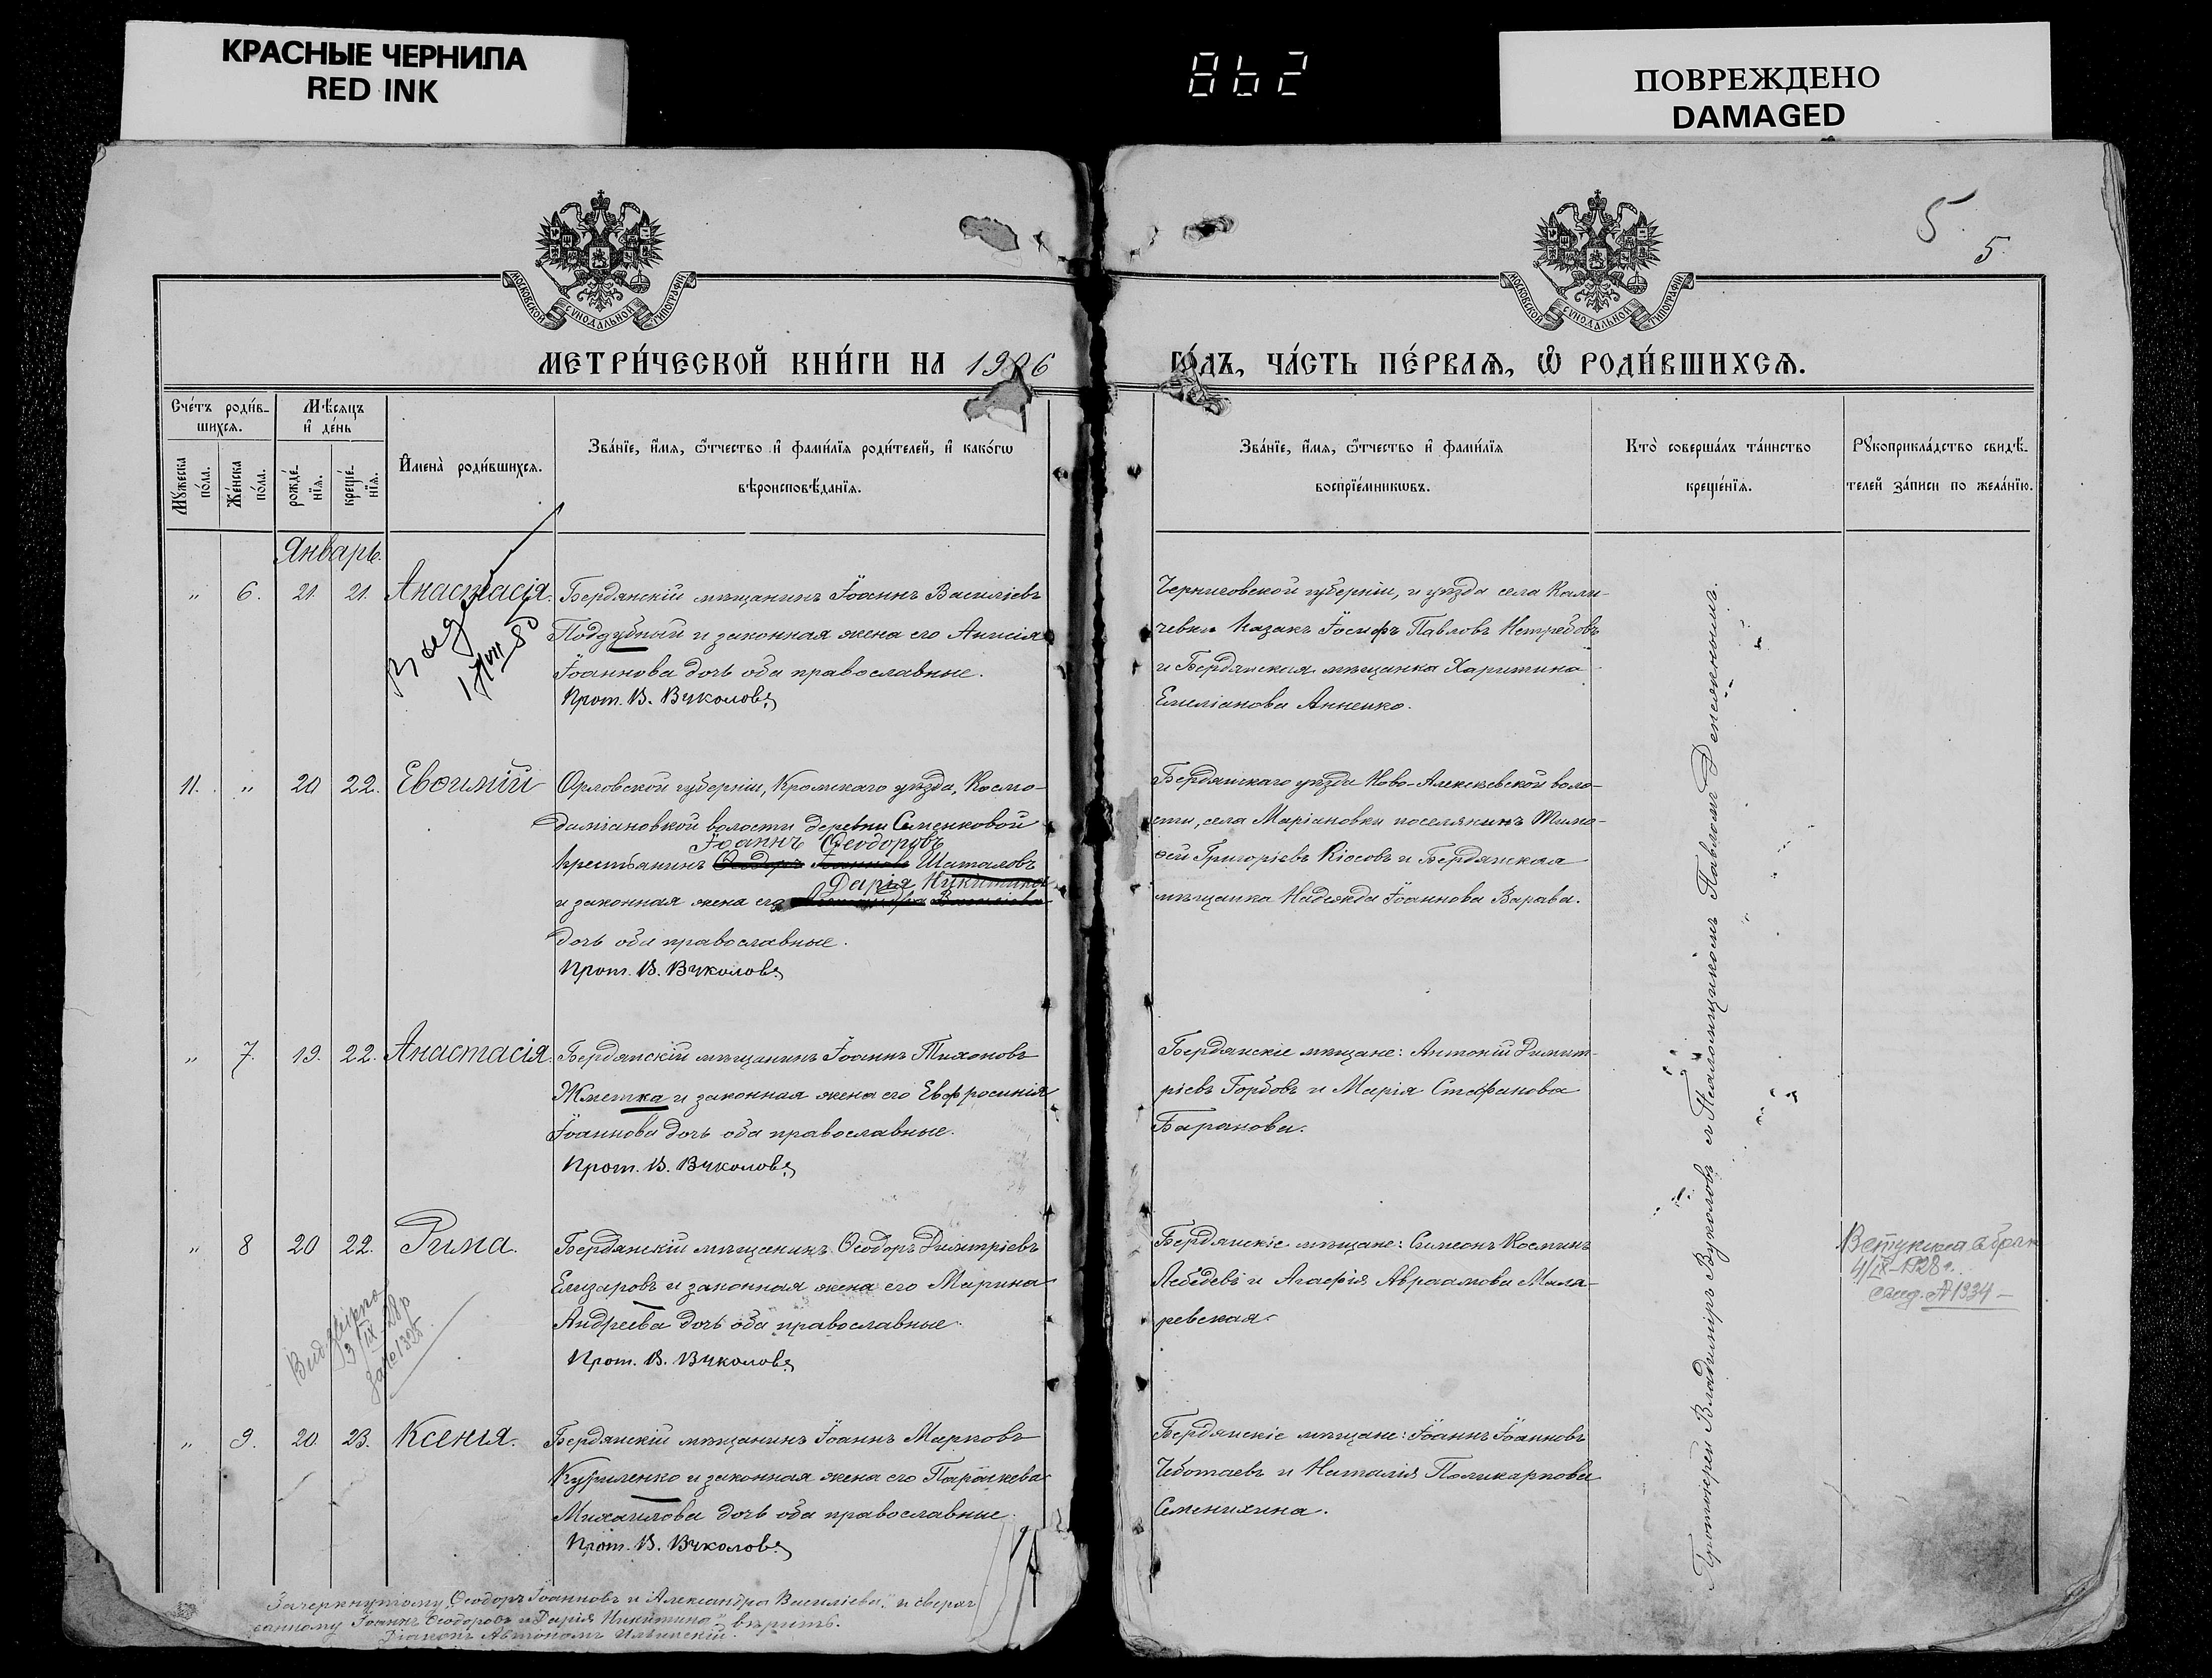 КРАСНЫЕ ЧЕРНИЛА
RED INK
862
ПОВРЕЖДЕНО
DAMAGED
5.
5.
МОСКОВСКОЙ СѴНОДАЛЬНОЙ ТИПОГРАФІИ
МОСКОВСКОЙ СѴНОДАЛЬНОЙ ТИПОГРАФІИ
МЕТРИ́ЧЕСКОЙ КНИ́ГИ НА 1906
ГО́ДЪ, ЧА́СТЬ ПЕ́РВАѦ, Ѽ РОДИ́ВШИХСѦ.
Сче́тъ роди́в-
шихсѧ.
Мꙋ́жеска по́ла.
Же́нска по́ла.
Мѣ́сѧцъ
и҆ де́нь
рожде́-
нїѧ.
креще́-
нїѧ.
И҆мена̀ роди́вшихсѧ.
Зва́нїе, и҆́мѧ, ѻ҆́тчество и҆ фами́лїѧ роди́телей, и҆ како́гѡ
вѣроисповѣ́данїѧ.
Зва́нїе, и҆́мѧ, ѻ҆́тчество и҆ фами́лїѧ
воспрїе́мникѡвъ.
Кто̀ соверша́лъ та́инство
креще́нїѧ.
Рꙋкоприкла́дство свидѣ́-
телей за́писи по жела́нїю.
Январь.
" 6. 21. 21. Анастасія.
Бердянскій мѣщанинъ Іоаннъ Василіевъ
Поддубный и законная жена его Анисія
Іоаннова дочь оба православные.
Прот. В. Вуколовъ
Черниговской губерніи, и уѣзда села Кали-
чевки казакъ Іосифъ Павловъ Нетребовъ
и Бердянская мѣщанка Харитина
Емеліанова Анненко.
11. " 20 22. Евѳимій
Орловской губерніи, Кромскаго уѣзда, Космо-
даміановской волости деревни Семенковой
Іоаннъ Ѳеодоровъ
крестьянинъ Ѳеодоръ Іоанновъ Шаталовъ
Дарія Никитина
и законная жена его Александра Василіева
дочь оба православные.
Прот. В. Вуколовъ
Бердянскаго уѣзда Ново-Алексѣевской воло-
сти, села Маріановки поселянинъ Тимо-
ѳей Григоріевъ Кіосовъ и Бердянская
мѣщанка Надежда Іоаннова Варава.
" 7. 19. 22. Анастасія.
Бердянскій мѣщанинъ Іоаннъ Тихоновъ
Жметка и законная жена его Евфросинія
Іоаннова дочь оба православные.
Прот. В. Вуколовъ
Бердянскіе мѣщане: Антоній Димит-
ріевъ Горбовъ и Марія Стефанова
Баранова.
" 8 20 22. Рима.
Бердянскій мѣщанинъ Ѳеодоръ Димитріевъ
Елизаровъ и законная жена его Марина
Андреева дочь оба православные.
Прот. В. Вуколовъ
Бердянскіе мѣщане: Симеонъ Косминъ
Лебедевъ и Агафія Авраамова Мала-
ревская
3/IX-28р
за № 1325
4/IX-1928 г.
" 9. 20. 23. Ксенія.
Бердянскій мѣщанинъ Іоаннъ Марковъ
Куриленко и законная жена его Параскева
Михаилова дочь оба православные.
Прот. В. Вуколовъ
Бердянскіе мѣщане: Іоаннъ Іоанновъ
Чеботаевъ и Наталія Поликарпова
Семенихина.
Протоіерей Владиміръ Вуколовъ съ Псаломщикомъ Павломъ
Зачеркнутому „Ѳеодоръ Іоанновъ и Александра Василіева", и сверхъ
санному „Іоаннъ Ѳеодоровъ и Дарія Никитина" вѣрить.
Діаконъ Автономъ Ильинскій.